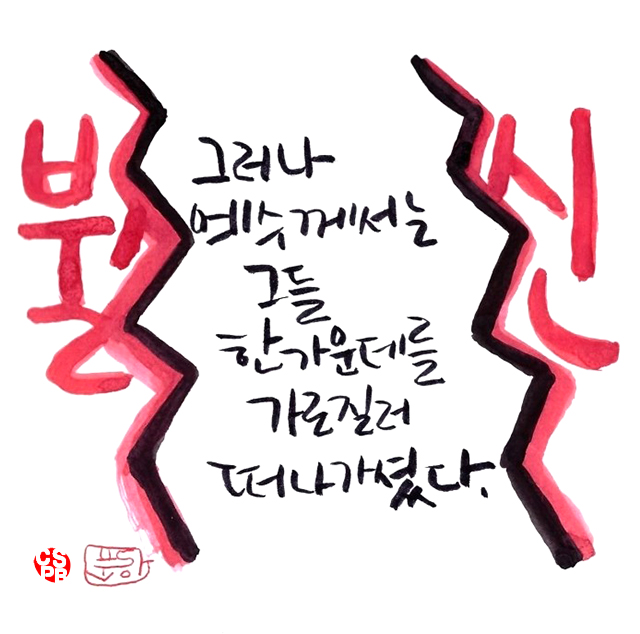 불신
그러나
예수께서는
그들
한가운데를
가로질러
떠나가셨다.
CS
PB